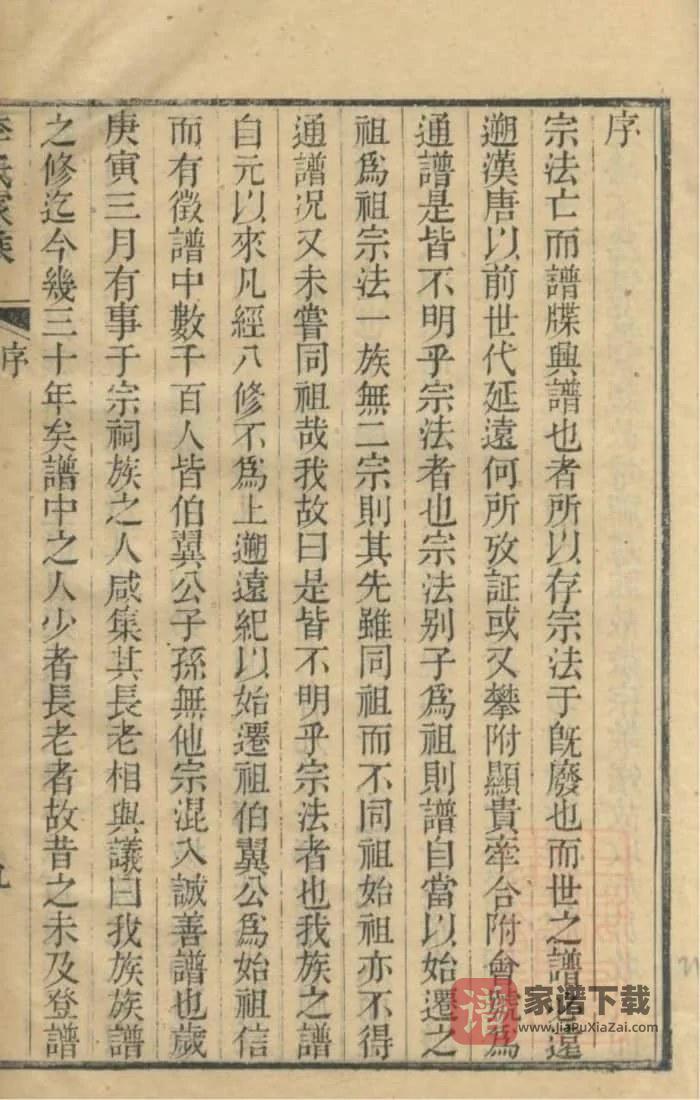 序
宗法亡而譜牒興譜也者所以存宗法于既廢也而世之譜必遠
遡漢唐以前世代延遠何所攷証或又攀附顯貴牽合附會號為
通譜是皆不明乎宗法者也宗法别子為祖則譜自當以始遷之
祖為祖宗法一族無二宗則其先雖同祖而不同祖始祖亦不得
通譜况又未嘗同祖哉我故曰是皆不明乎宗法者也我族之譜
自元以來凡經八修不為上遡遠紀以始遷祖伯翼公為始祖信
而有徵譜中數千百人皆伯翼公子孫無他宗混入誠善譜也歲
庚寅三月有事于宗祠族之人咸集其長老相與議曰我族族譜
之修迄今幾三十年矣譜中之人少者長老者故昔之未及登譜
李氏家族
序
九
家谱下载
www.JiaPuXiaZai.com